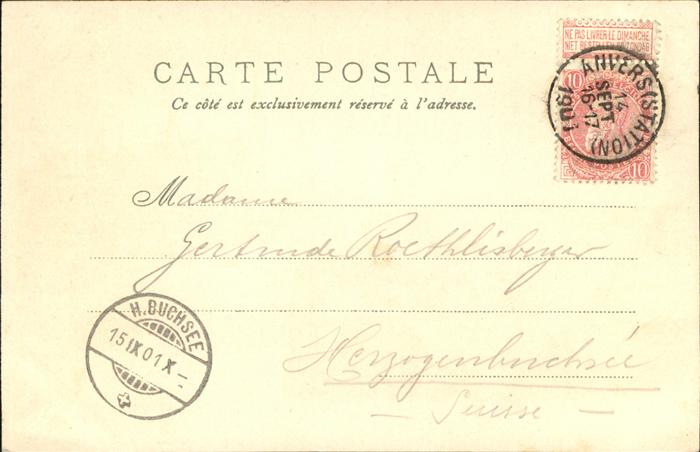 NE PAS LIVRER LE DIMANCHE
NIET BESTELLEN OP ZONDAG
10
10
ANVERS (STATION)
14
SEPT
16-17
1901
CARTE POSTALE
Ce côté est exclusivement réservé à l'adresse.
Madame
Gertrude Roethlisberger
Herzogenbuchsée
— Suisse —
H. BUCHSEE
15 IX 01 X –